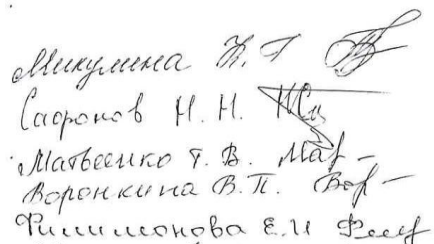 Микулина Н. Г
Сафронов Н. Н.
Матвеенко Т. В. Мат
Воронкина В. П. Вор
Филимонова Е. И Фил